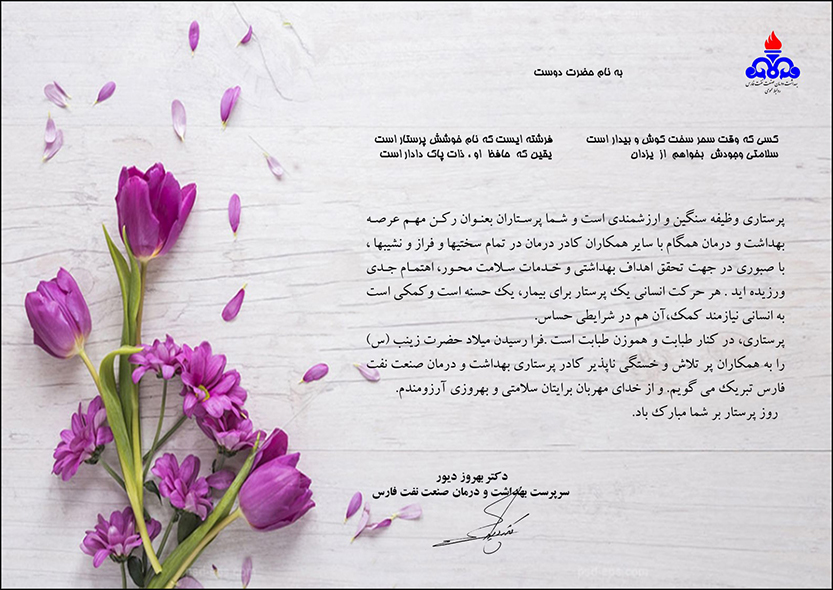 بهداشت و درمان صنعت نفت فارس
روابط عمومی
به نام حضرت دوست
کسی که وقت سحر سخت کوش و بیدار است فرشته ایست که نام خوشش پرستار است
سلامتی وجودش بخواهم از یزدان یقین که حافظ او ، ذات پاک دادار است
پرستاری وظیفه سنگین و ارزشمندی است و شما پرستاران بعنوان رکن مهم عرصه
بهداشت و درمان همگام با سایر همکاران کادر درمان در تمام سختیها و فراز و نشیبها ،
با صبوری در جهت تحقق اهداف بهداشتی و خدمات سلامت محور، اهتمام جدی
ورزیده اید . هر حرکت انسانی یک پرستار برای بیمار، یک حسنه است وکمکی است
به انسانی نیازمند کمک،آن هم در شرایطی حساس.
پرستاری، در کنار طبابت و هموزن طبابت است .فرا رسیدن میلاد حضرت زینب (س)
را به همکاران پر تلاش و خستگی ناپذیر کادر پرستاری بهداشت و درمان صنعت نفت
فارس تبریک می گویم. و از خدای مهربان برایتان سلامتی و بهروزی آرزومندم.
روز پرستار بر شما مبارک باد.
دکتر بهروز دیور
سرپرست بهداشت و درمان صنعت نفت فارس